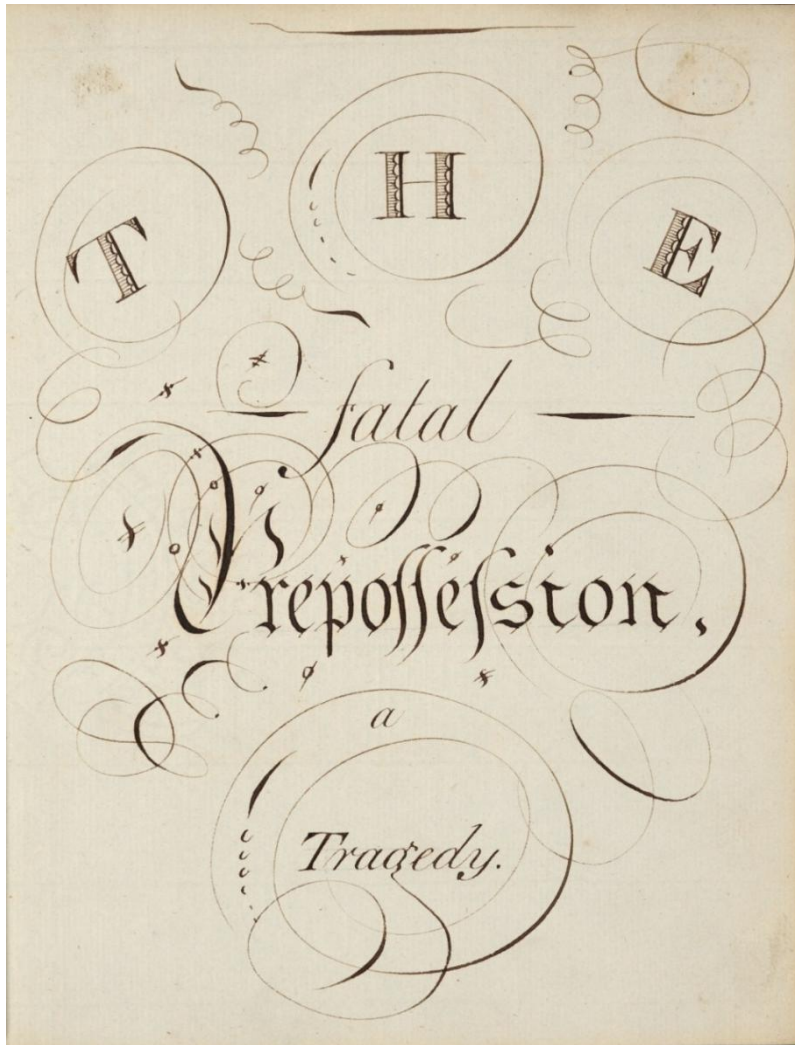 THE
fatal
Prepoſſeſsion,
a
Tragedy.